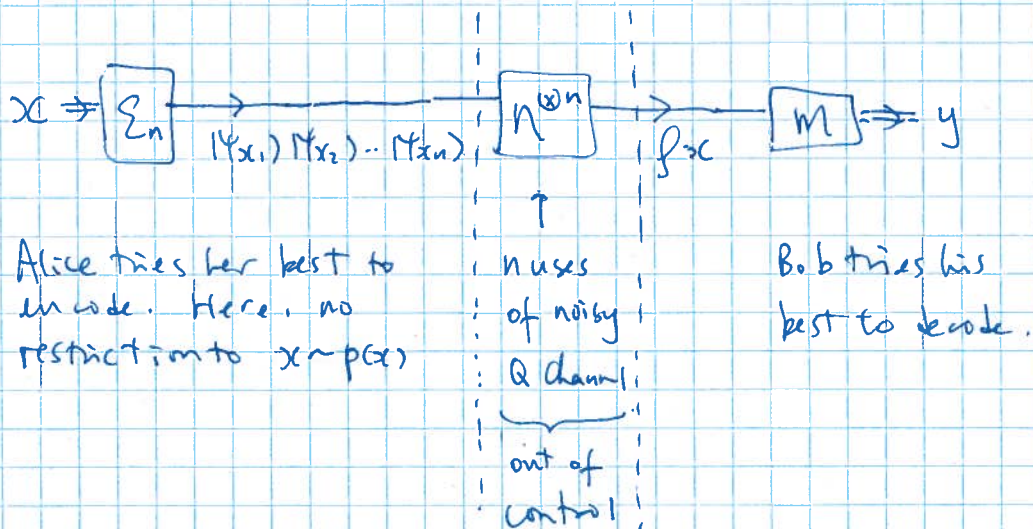 x ⇒ Σn → N^⊗n → M ⇒ y
|ψx1⟩ |ψx2⟩ .. |ψxn⟩
ρx
↑
Alice tries her best to
encode. Here, no
restriction to x~p(x)
n uses
of noisy
Q channel
out of
control
Bob tries his
best to decode.